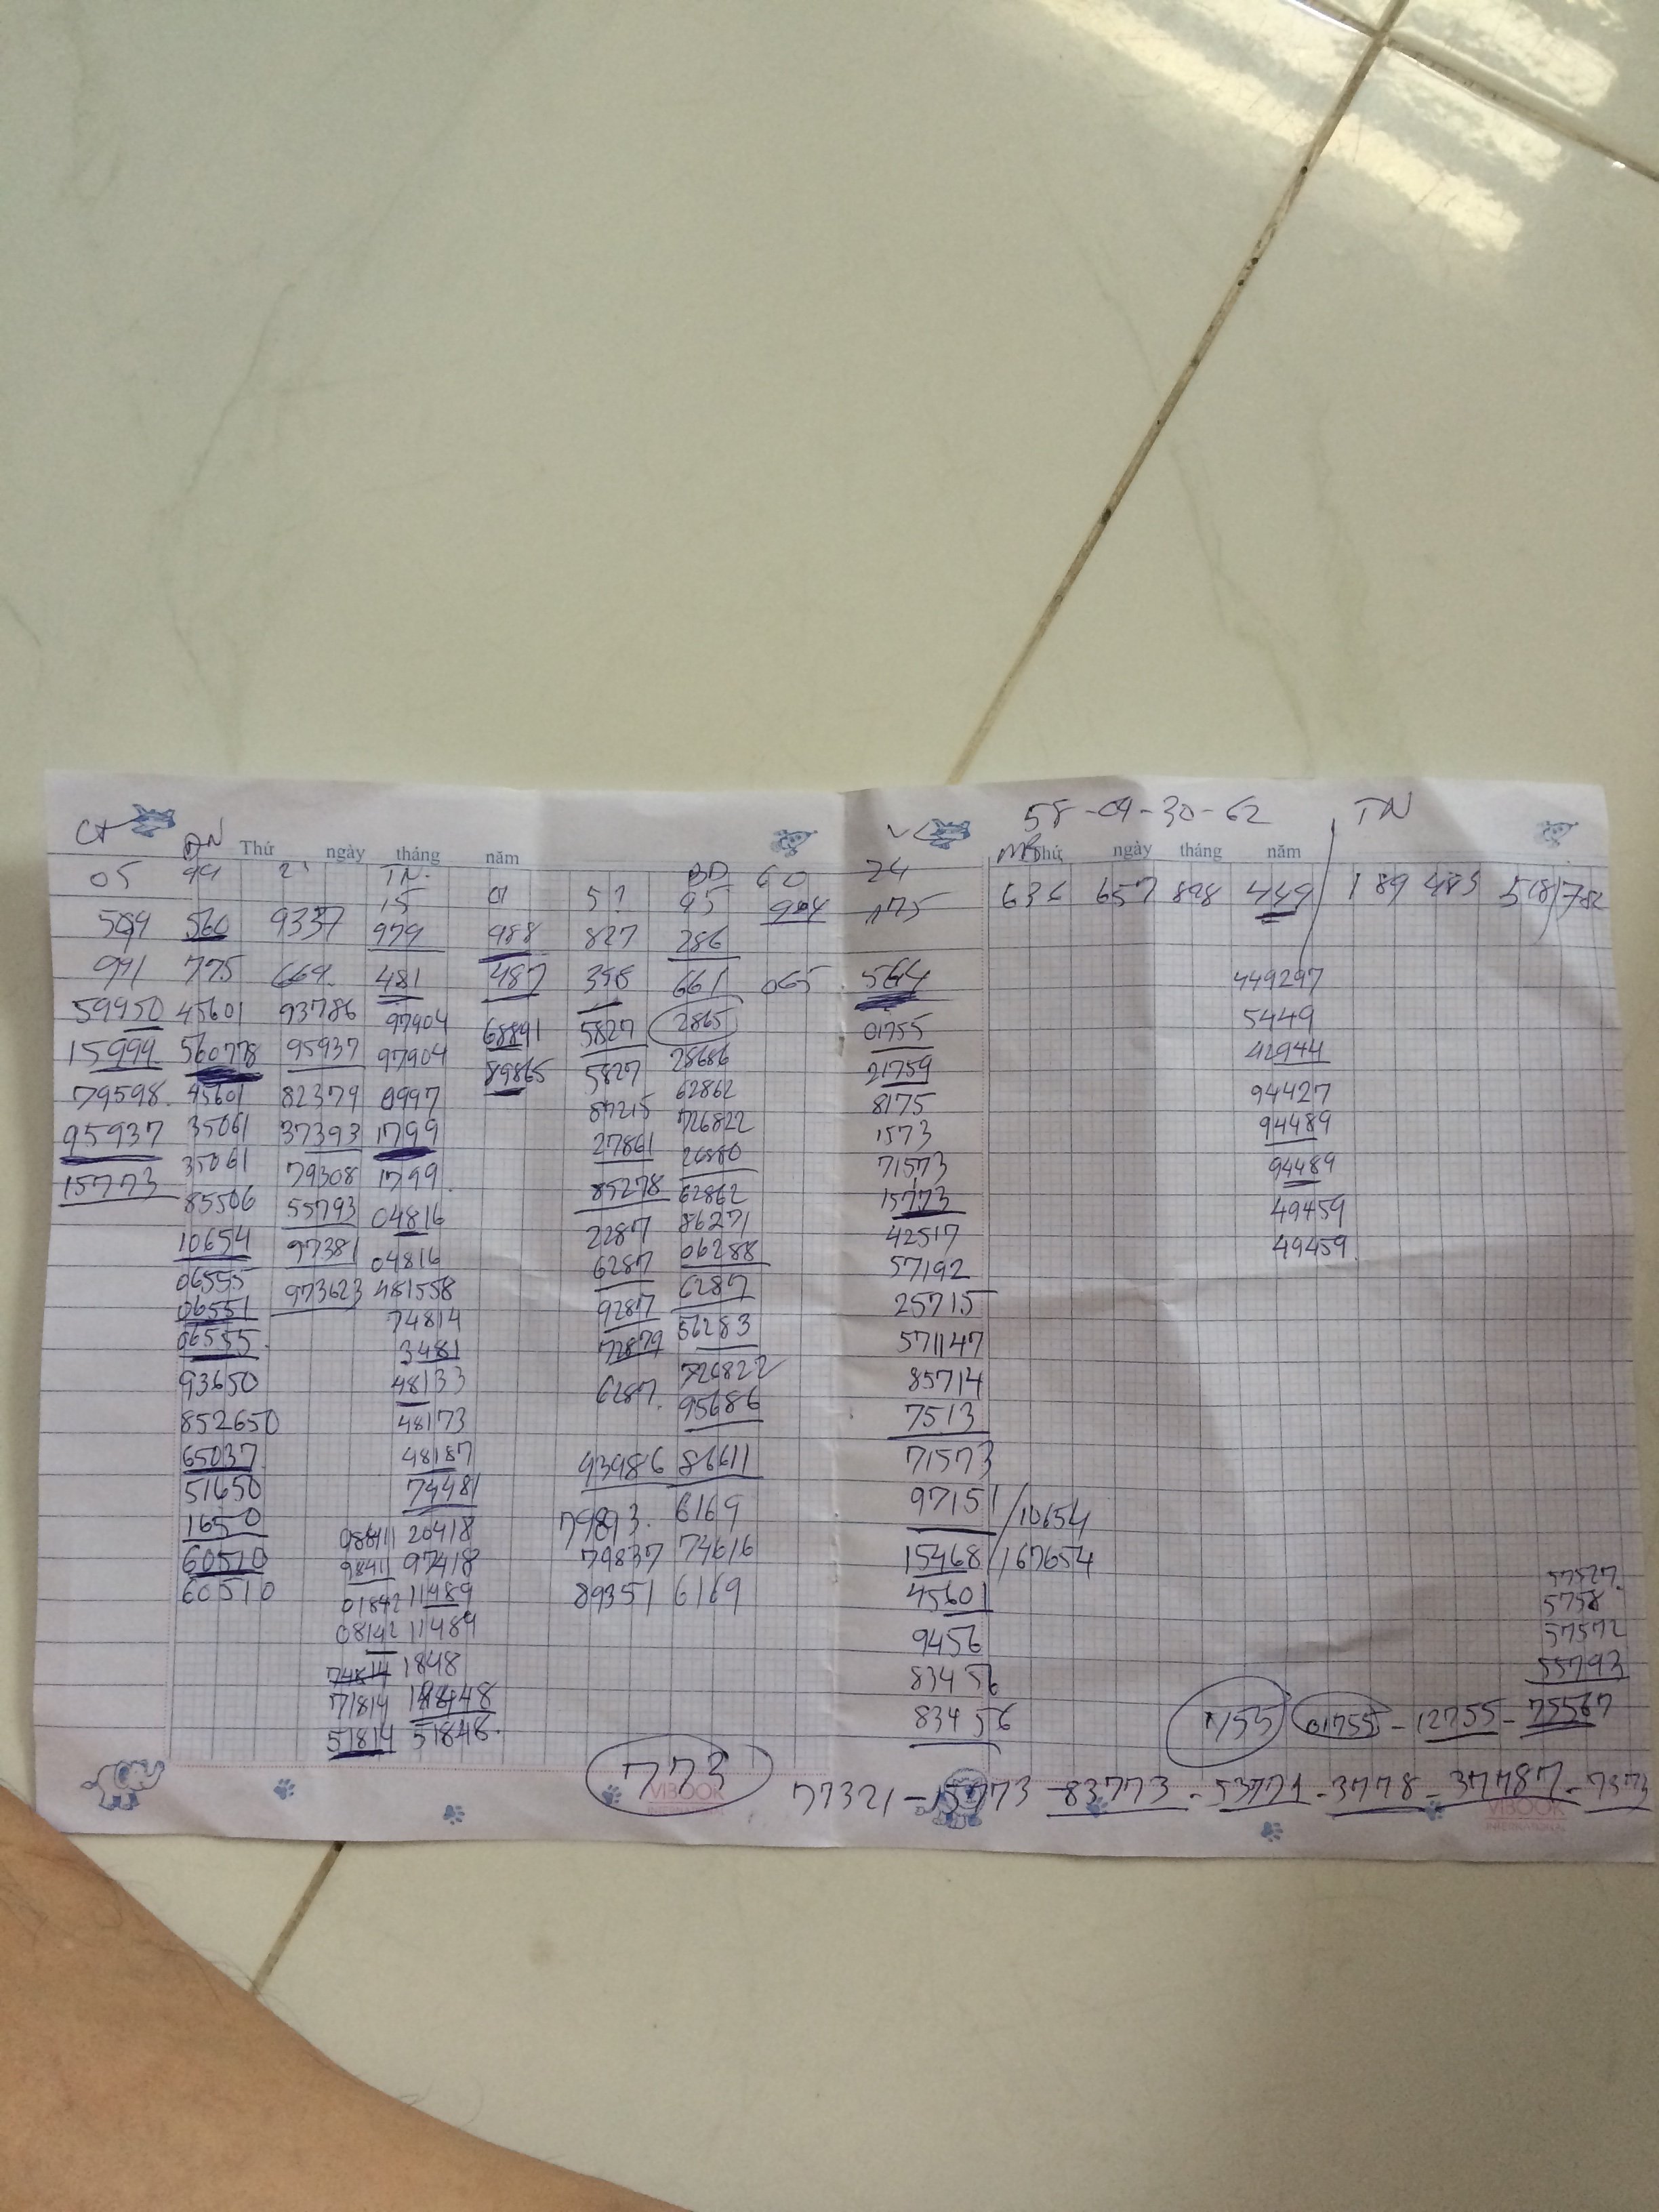 58-09-30-62 TN
CT ĐN Thứ ngày tháng năm Thứ ngày tháng năm
05 99 TN. BD 60 24
15 01 95
636 657 898 449 189 483 782
560 9337 979 988 827 286
991 775 669. 481 487 661 065 564 449297
59950 45601 93786 97904 68891 5827 2865 01755 5449
15999 560778 95937 97904 89865 5827 28686 21759 42944
79598. 45601 82379 0997 87215 62862 8175 94427
95937 35061 37393 1799 27861 726822 1573 94489
15773 35061 79308 1799. 85278 26880 71573 94489
85506 55793 04816 2287 62862 15773 49459
10654 97381 04816 6287 86271 42517 49459.
06555 973623 481558 9287 06288 57192
06551 74814 72879 6287 25715
06555. 3481 6287. 56283 571147
93650 48133 726822 85714
852650 48173 95686 7513
65037 48187 93986 86611 71573
51650 74481 6169 97151/10654
1650 98411 20418 79893. 74616 15468/167654
60510 98411 97418 79837 6169 45601 57527.
60510 01842 11489 89351 9456 5758
08142 11489 83456 57572
74814 1848 83456 55793
71814 18448 01755 - 12755 - 75567
51814 51848.
773 77321 - 15773 - 83773 - 53771 - 3778 - 37787 - 7373
VIBOOK
INTERNATIONAL
VIBOOK
INTERNATIONAL